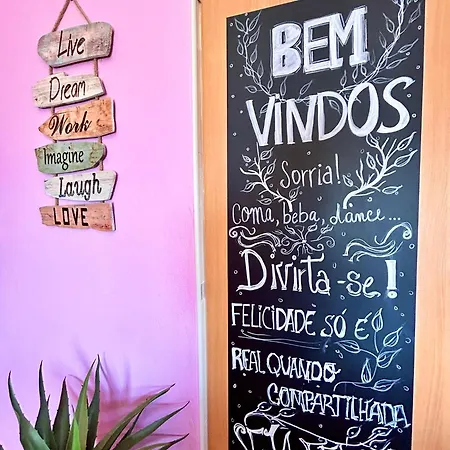 Live
Dream
Work
Imagine
Laugh
LOVE
BEM
VINDOS
Sorria!
Coma, beba, dance...
Divirta-se!
FELICIDADE SÓ É
REAL QUANDO
COMPARTILHADA